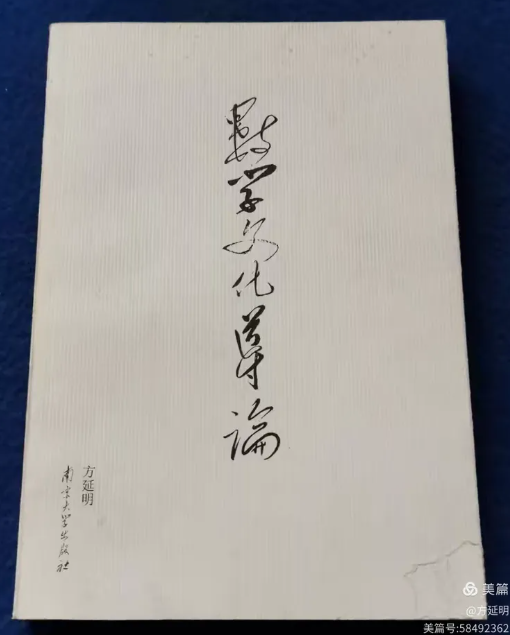 數学文化導論
方延明
南京大学出版社
美篇
@方延明
美篇号:58492362